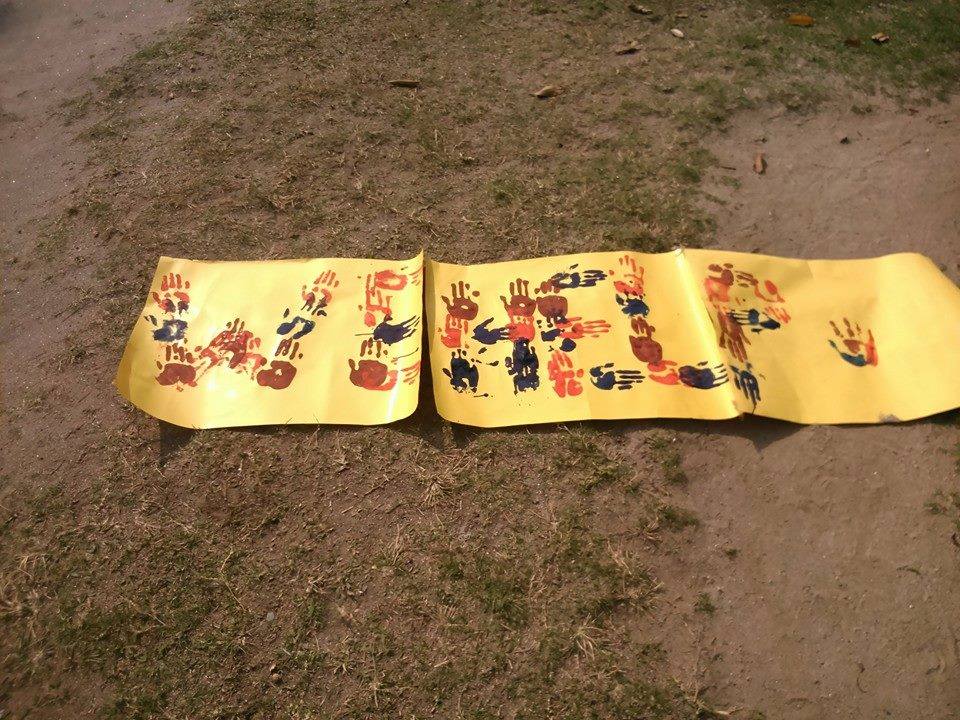 WE HELP